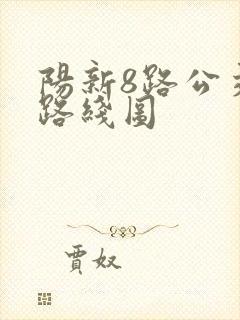 陽新8路公
路綫圖
賈奴